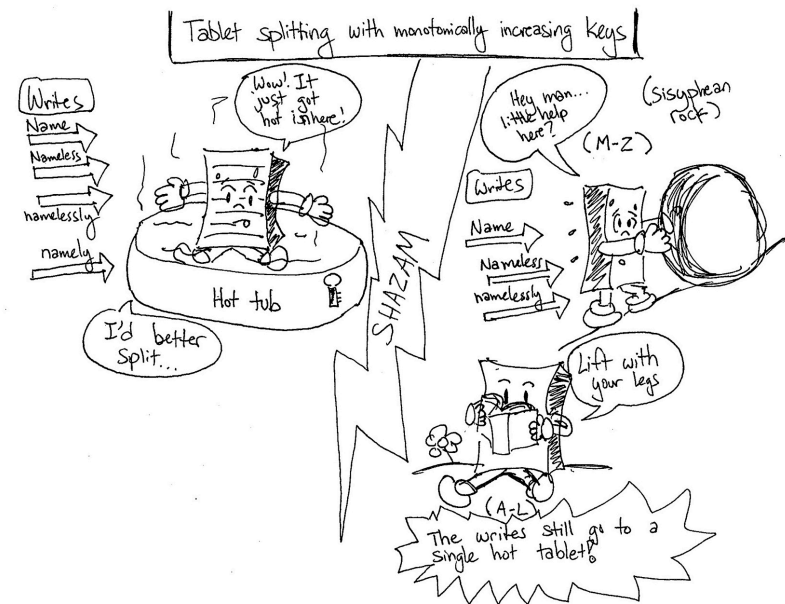 Tablet splitting with monotonically increasing keys
Writes
Name
Nameless
namelessly
namely
Wow! It
just got
hot in here!
Hot tub
I'd better
split...
SHAZAM
Hey man...
little help
here?
(sisyphean
rock)
(M-Z)
Writes
Name
Nameless
namelessly
Lift with
your legs
(A-L)
The writes still go to a
single hot tablet!